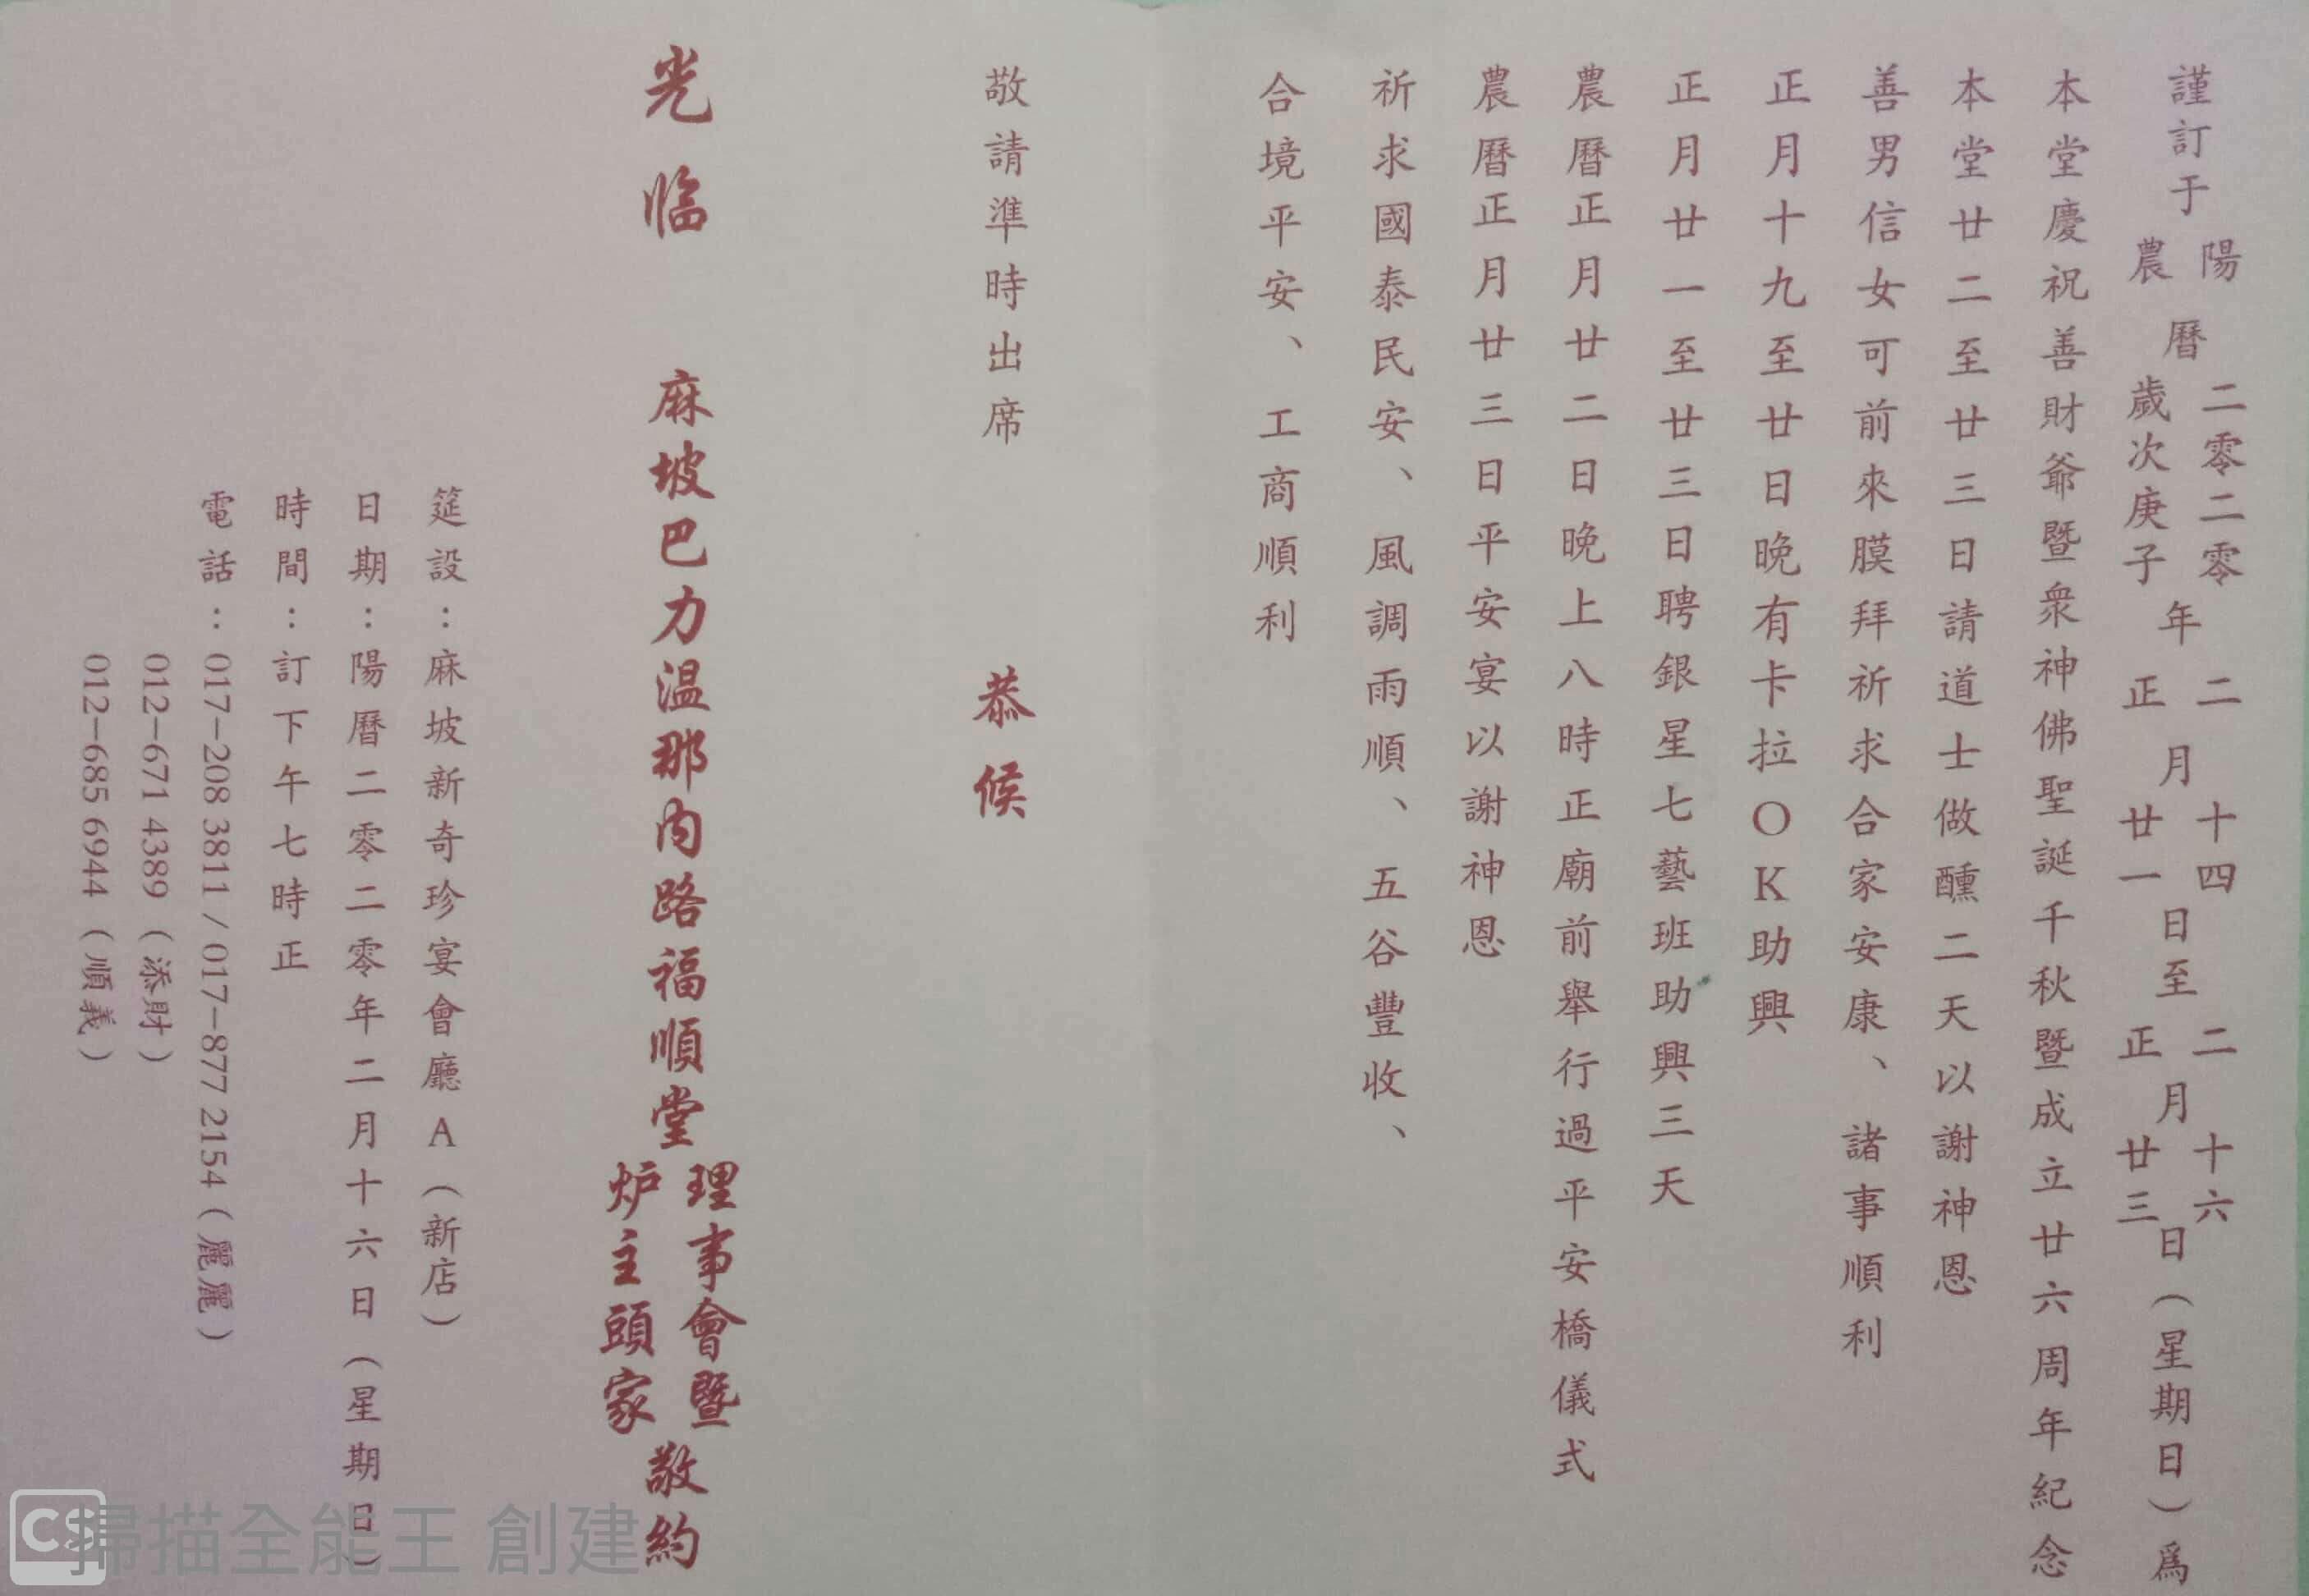 謹訂于陽曆二零二零年二月十四日至二月十六日（星期日）爲
農曆歲次庚子年正月廿一日至正月廿三日（星期日）爲
本堂慶祝善財爺暨衆神佛聖誕千秋暨成立廿六周年紀念
本堂廿二至廿三日請道士做醺二天以謝神恩
善男信女可前來膜拜祈求合家安康、諸事順利
正月十九至廿日晚有卡拉OK助興
正月廿一至廿三日聘銀星七藝班助興三天
農曆正月廿二日晚上八時正廟前舉行過平安橋儀式
農曆正月廿三日平安宴以謝神恩
祈求國泰民安、風調雨順、五谷豐收、
合境平安、工商順利
敬請準時出席 恭候
光臨 麻坡巴力温那内路福順堂理事會暨炉主頭家敬約
筵設：麻坡新奇珍宴會廳A（新店）
日期：陽曆二零二零年二月十六日（星期日）
時間：訂下午七時正
電話：017-208 3811 / 017-877 2154（麗麗）
012-671 4389（添財）
012-685 6944（順義）
CS 掃描全能王 創建